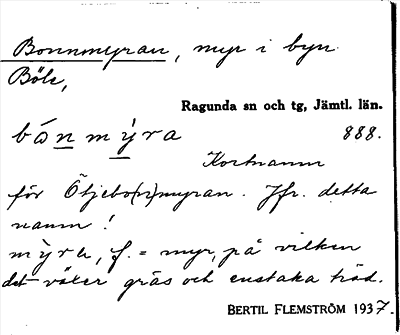 Bonnmyran, myr i byn
Böle,
Ragunda sn och tg, Jämtl. län.
bònmỳra 888.
Kortnamn
för Öljebo(n)myran. Jfr. detta
namn!
mỳra, f. = myr, på vilken
det växer gräs och enstaka träd.
BERTIL FLEMSTRÖM 1937.